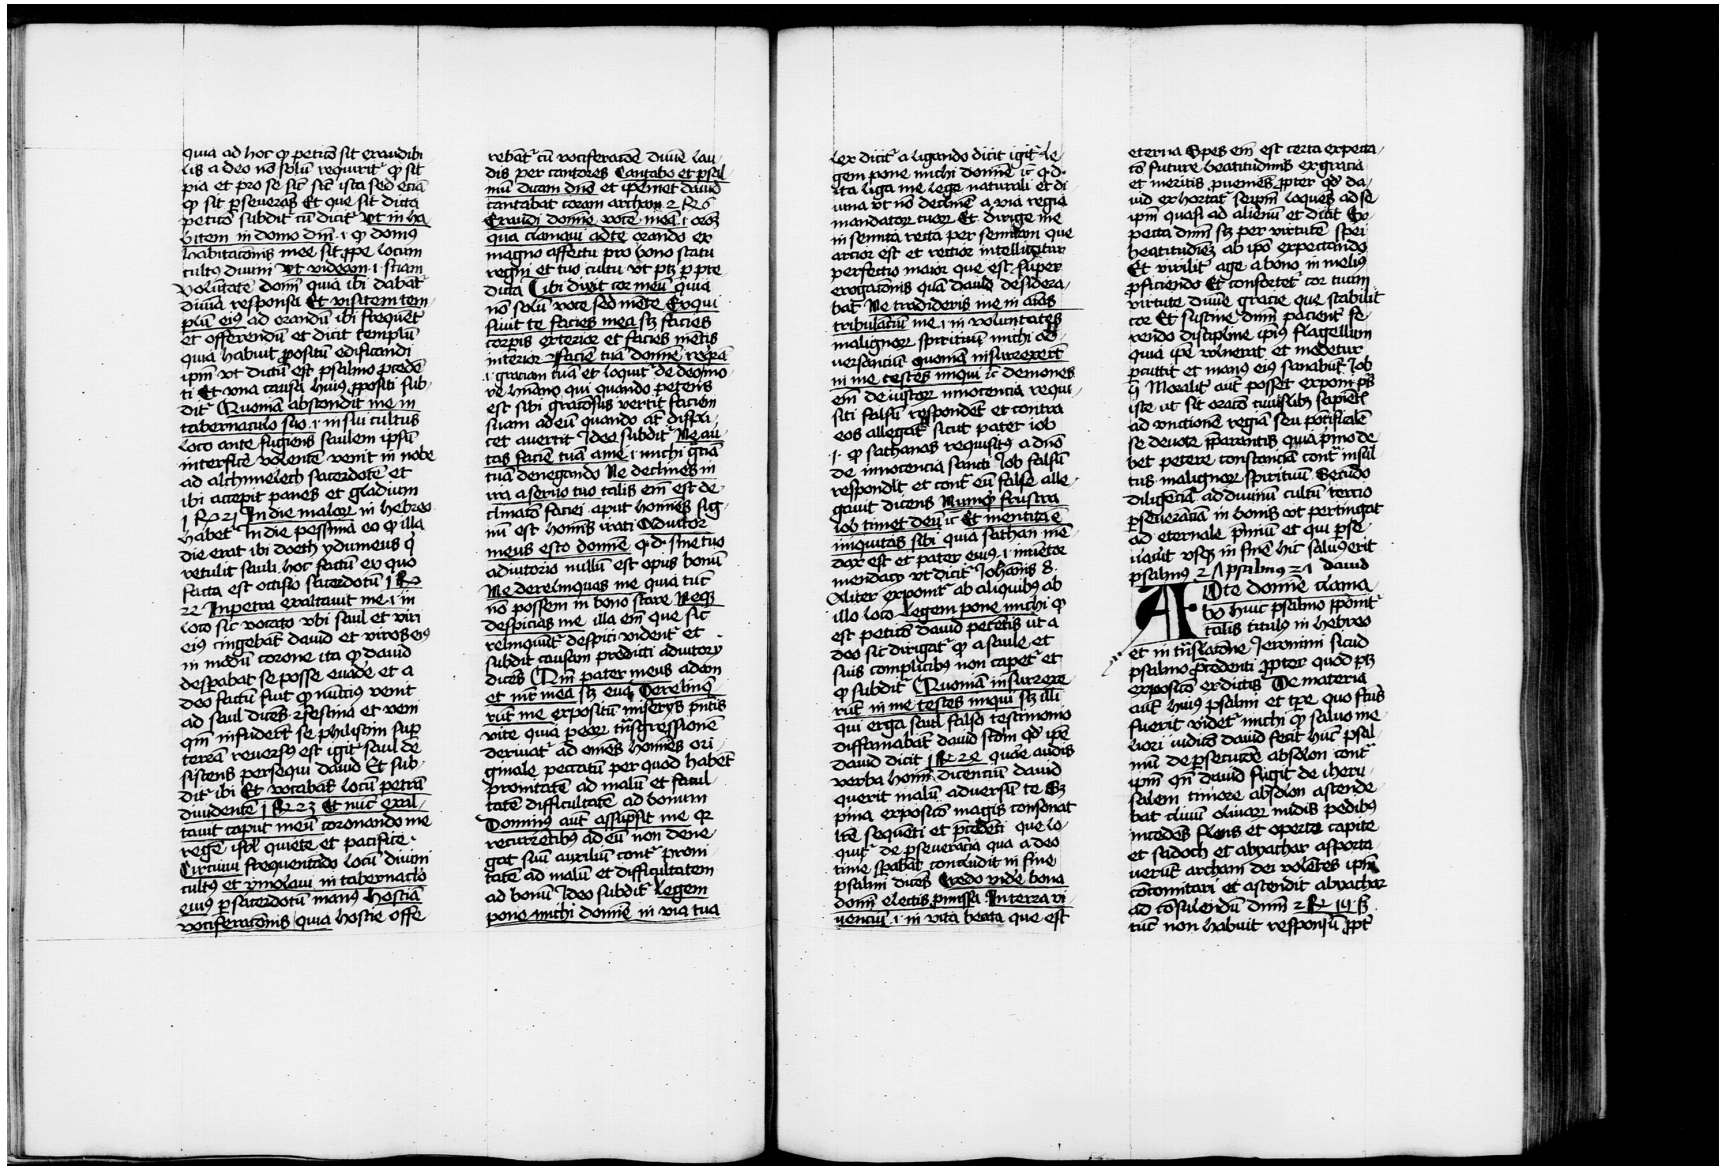 quia ad hoc qͥ peticō sit exaudibi
lis a deo nō solū requirit᷑ qͥ sit
pia et pro se sicͭ sūt ista sed eciā
qͥ sit p̱seuerās Et que sit dicta
peticō subdit cū dicit Vt in ha
bitem in domo dnī · i · qͥ domꝰ
habitacōnis mee sit ꝓpe locum
cultꝰ diuini Vt videam · i · sciam
voluntatē domī quia ibi dabāt᷑
diuina responsa Et visitem tem
plū eiꝰ ad orandū ibi frequēt᷑
et offerendū et dicit templū
quia habuit ꝓpositū edificandi
ipm̄ vt dictū est psalmo p̄cedē
ti Et vna causa huiꝰ ꝓpositi sub
dit᷑ Quoniā abscondit me in
tabernaculo suo · i · in sui cultus
loco ante fugiens saulem ipsū
interficē volentē venit in nobe
ad alchimelech sacerdotē et
ibi accepit panes et gladium
1 R̶ 21 In die malor᷑ in hebreo
habet᷑ In die pessima eo qͥ illa
die erat ibi doech ydumeus qͥ
retulit sauli hoc factū ex quo
facta est occisio sacerdotū 1 R̶
22 In petra exaltauit me · i · in
loco sic vocato vbi saul et viri
eiꝰ cingebāt dauid et viros eiꝰ
in modū corone ita qͥ dauid
desp̱abat se posse euadē et a
deo factū fuit qͥ nūciꝰ venit
ad saul dicēs festina et veni
qm̄ infuderūt se philistim suꝑ
terrā reuersꝰ est igit᷑ saul de
sistens persequi dauid Et sub
dit᷑ ibi Et vocabāt locū petrā
diuidentē 1 R̶ 23 Et nūc exal
tauit caput meū coronando me
regē isrl̄ quiete et pacifice
Circuiui frequentādo locū diuini
cultꝰ et ymolaui in tabernac̄lo
eiꝰ p̱ sacerdotū manꝰ hostiā
vociferacōnis quia hostie offe
rebāt᷑ cū vociferacōe diuīe lau
dis per cantores Cantabo et psal
mū dicam dnō et ipemet dauid
cantabat coram archam 2 R̶ 6
Exaudi domīe vocē meā · i · orōꝫ
qua clamaui ad te orando ex
magno affectu pro bono statu
regni et tuo cultu vt pꝫ p̱ p̄te
dicta Tibi dixit cor meū quia
nō solū voce sed mēte Exqui
siuit te facies mea sꝫ facies
corp̱is exterior et facies mētis
interior Faciē tuā domīe reqͥrā
· i · graciam tuā et loquit᷑ de deo mo
re hūano qui quando petens
est sibi graciosus vertit faciem
suam ad eū quando aūt displi
cet auertit Ideo subdit᷑ Ne au
tas faciē tuā a me · i · michi gr̄ām
tuā denegando Ne declines in
ira a seruo tuo talis em̄ est de
clinacō faciei aput homīes sig
nū est homīs irati Adiutor
meus esto domīe q · d · sine tuo
adiutorio nullū est opus bonū
Ne derelinquas me quia tūc
nō possem in bono stare Neqꝫ
despicias me illa em̄ que sic
relinquūt᷑ despici vident᷑ et
subdit causam predicti adiutorij
dicēs Qm̄ pater meus adam
et mr̄ mea sꝫ eua Derelinq̄
rūt me expositū miserijs p̄ntis
vite quia peor᷑ tūsgressionē
deriuat᷑ ad omēs homīes ori
ginale peccatū per quod habēt
pronitatē ad malū et facul
tatē difficultatē ad bonum
Dominus aūt assūpsit me qͬ
recurrētibꝰ ad eū non dene
gat suū auxiliū cont᷑ proni
tatē ad malū et difficultatem
ad bonū Ideo subdit legem
pone michi domīe in via tua
lex dicit᷑ a ligando dicit igit᷑ le
gem pone michi domīe ꝛc̄ q · d ·
ita liga me lege naturali et di
uina vt nō declinē a via regia
mandator᷑ tuor᷑ Et dirige me
in semita recta per semitam que
arcior est et rectior intelligitur
perfectio maior que est super
erogacōnis quā dauid desidera
bat Ne tradideris me in aīas
tribulāciū me · i · in voluntates
malignor᷑ spirituū michi ad
uersanciū quoniā insurrexerūt
in me testes iniqui ꝛc̄ demones
em̄ de iustor᷑ innocencia requi
siti falsū respondēt et contra
eos allegāt sicut patet iob
· 1 · qͥ sathanas requisitꝰ a dnō
de innocencia sancti Job falsū
respondit et cont᷑ eū false alle
gauit dicens Numqͥd frustra
Iob timet deū ꝛc̄ Et mentita ē
iniquitas sibi quia sathan mē
dax est et pater eiꝰ · i · inuētor
mendacij vt dicit᷑ Johānis 8.
Aliter exponit᷑ ab aliquibꝰ ab
illo loco Legem pone michi qͥ
est peticō dauid petētis vt a
deo sic dirigat᷑ qͥ a saule et
suis complicibꝰ non capet᷑ et
qͥ subdit᷑ Quoniā insurrexe
rūt in me testes iniqui sꝫ illi
qui erga saul falso testimonio
diffamabāt dauid scdm̄ qd̄ ipē
dauid dicit 1 R̶ 24 quare audis
verba homī dicenciū dauid
querit malū aduersū te Sꝫ
pīma exposicō magis consonat
lrē sequēti et p̄cedēti que lo
quit᷑ de p̱seuerācia qua a deo
time sp̱abat concludit in fine
psalmi dicēs Credo videre bona
domī electis p̄missa In terra vi
uenciū · i · in vita beata que est
eterna Spes em̄ est certa expecta
cō future beatitudinis ex gracia
et meritis ꝓueniēs ꝓpter qd̄ da
uid exhortat᷑ seipm̄ loquēs ad se
ipm̄ quasi ad alienū et dicit Ex
pecta dnm̄ sꝫ per virtutē spei
beatitudīeꝫ ab ipō expectando
Et virilit᷑ age a bono in meliꝰ
ꝓficiendo Et confortet᷑ cor tuum
virtute diuīe gracie que stabilit
cor Et sustine dnm̄ pacient᷑ fe
rendo discipline ipīus flagellum
quia ipē vulnerat et medetur
p̱cutit et manꝰ eiꝰ sanabūt Job
v̄ Moralit᷑ aūt posset exponi pͫs
iste vt sit oracō cuiuslibꝫ sapiētis
ad vnctionē regiā seu pōtificalē
se deuote p̄parantis quia p̄mo de
bet petere constanciā cont᷑ insul
tus malignor᷑ spirituū Secūdo
diligēciā ad diuinū cultū tercio
p̱seueranciā in bonis vt pertingat
ad eternale p̄miū et qui p̱se
uāuit vsqꝫ in finē hic saluꝰ erit
psalmꝰ 21 psalmus 21 dauid
Ad te domīe clama
bo huic psalmo p̄ponit᷑
talis titulꝰ in hebreo
et in trāslacōne Jeronimi sicud
psalmo p̄cedenti ꝓpter quod pꝫ
exposicō ex dictis De materia
aūt huiꝰ psalmi et tꝑe quo fcūs
fuerit videt᷑ michi qͥ saluo me
liori iudicō dauid fecit hūc psal
mū de p̱secucōe absolon cont᷑
ipm̄ qn̄ dauid fugit de iheru
salem timore absolon ascende
bat cliuū oliuar᷑ nudis pedibꝰ
incedēs flens et operto capite
et sadoch et abyachar asporta
uerūt archam dei volētes ipm̄
concomitari et ascendit abyachar
ad cōsulendū dnm̄ 2 R̶ 19 sꝫ
tūc non habuit responsū ꝓpt᷑